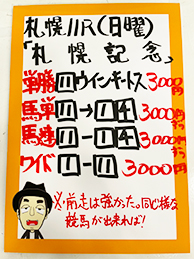 札幌11R(日曜)
「札幌記念」
単勝 1 ウインキートス 3000円
馬単 1→1 4 3000円
馬連 1-1 4 3000円
ワイド 1-1 3000円
※前走は強かった。同じ様な
競馬が出来れば!